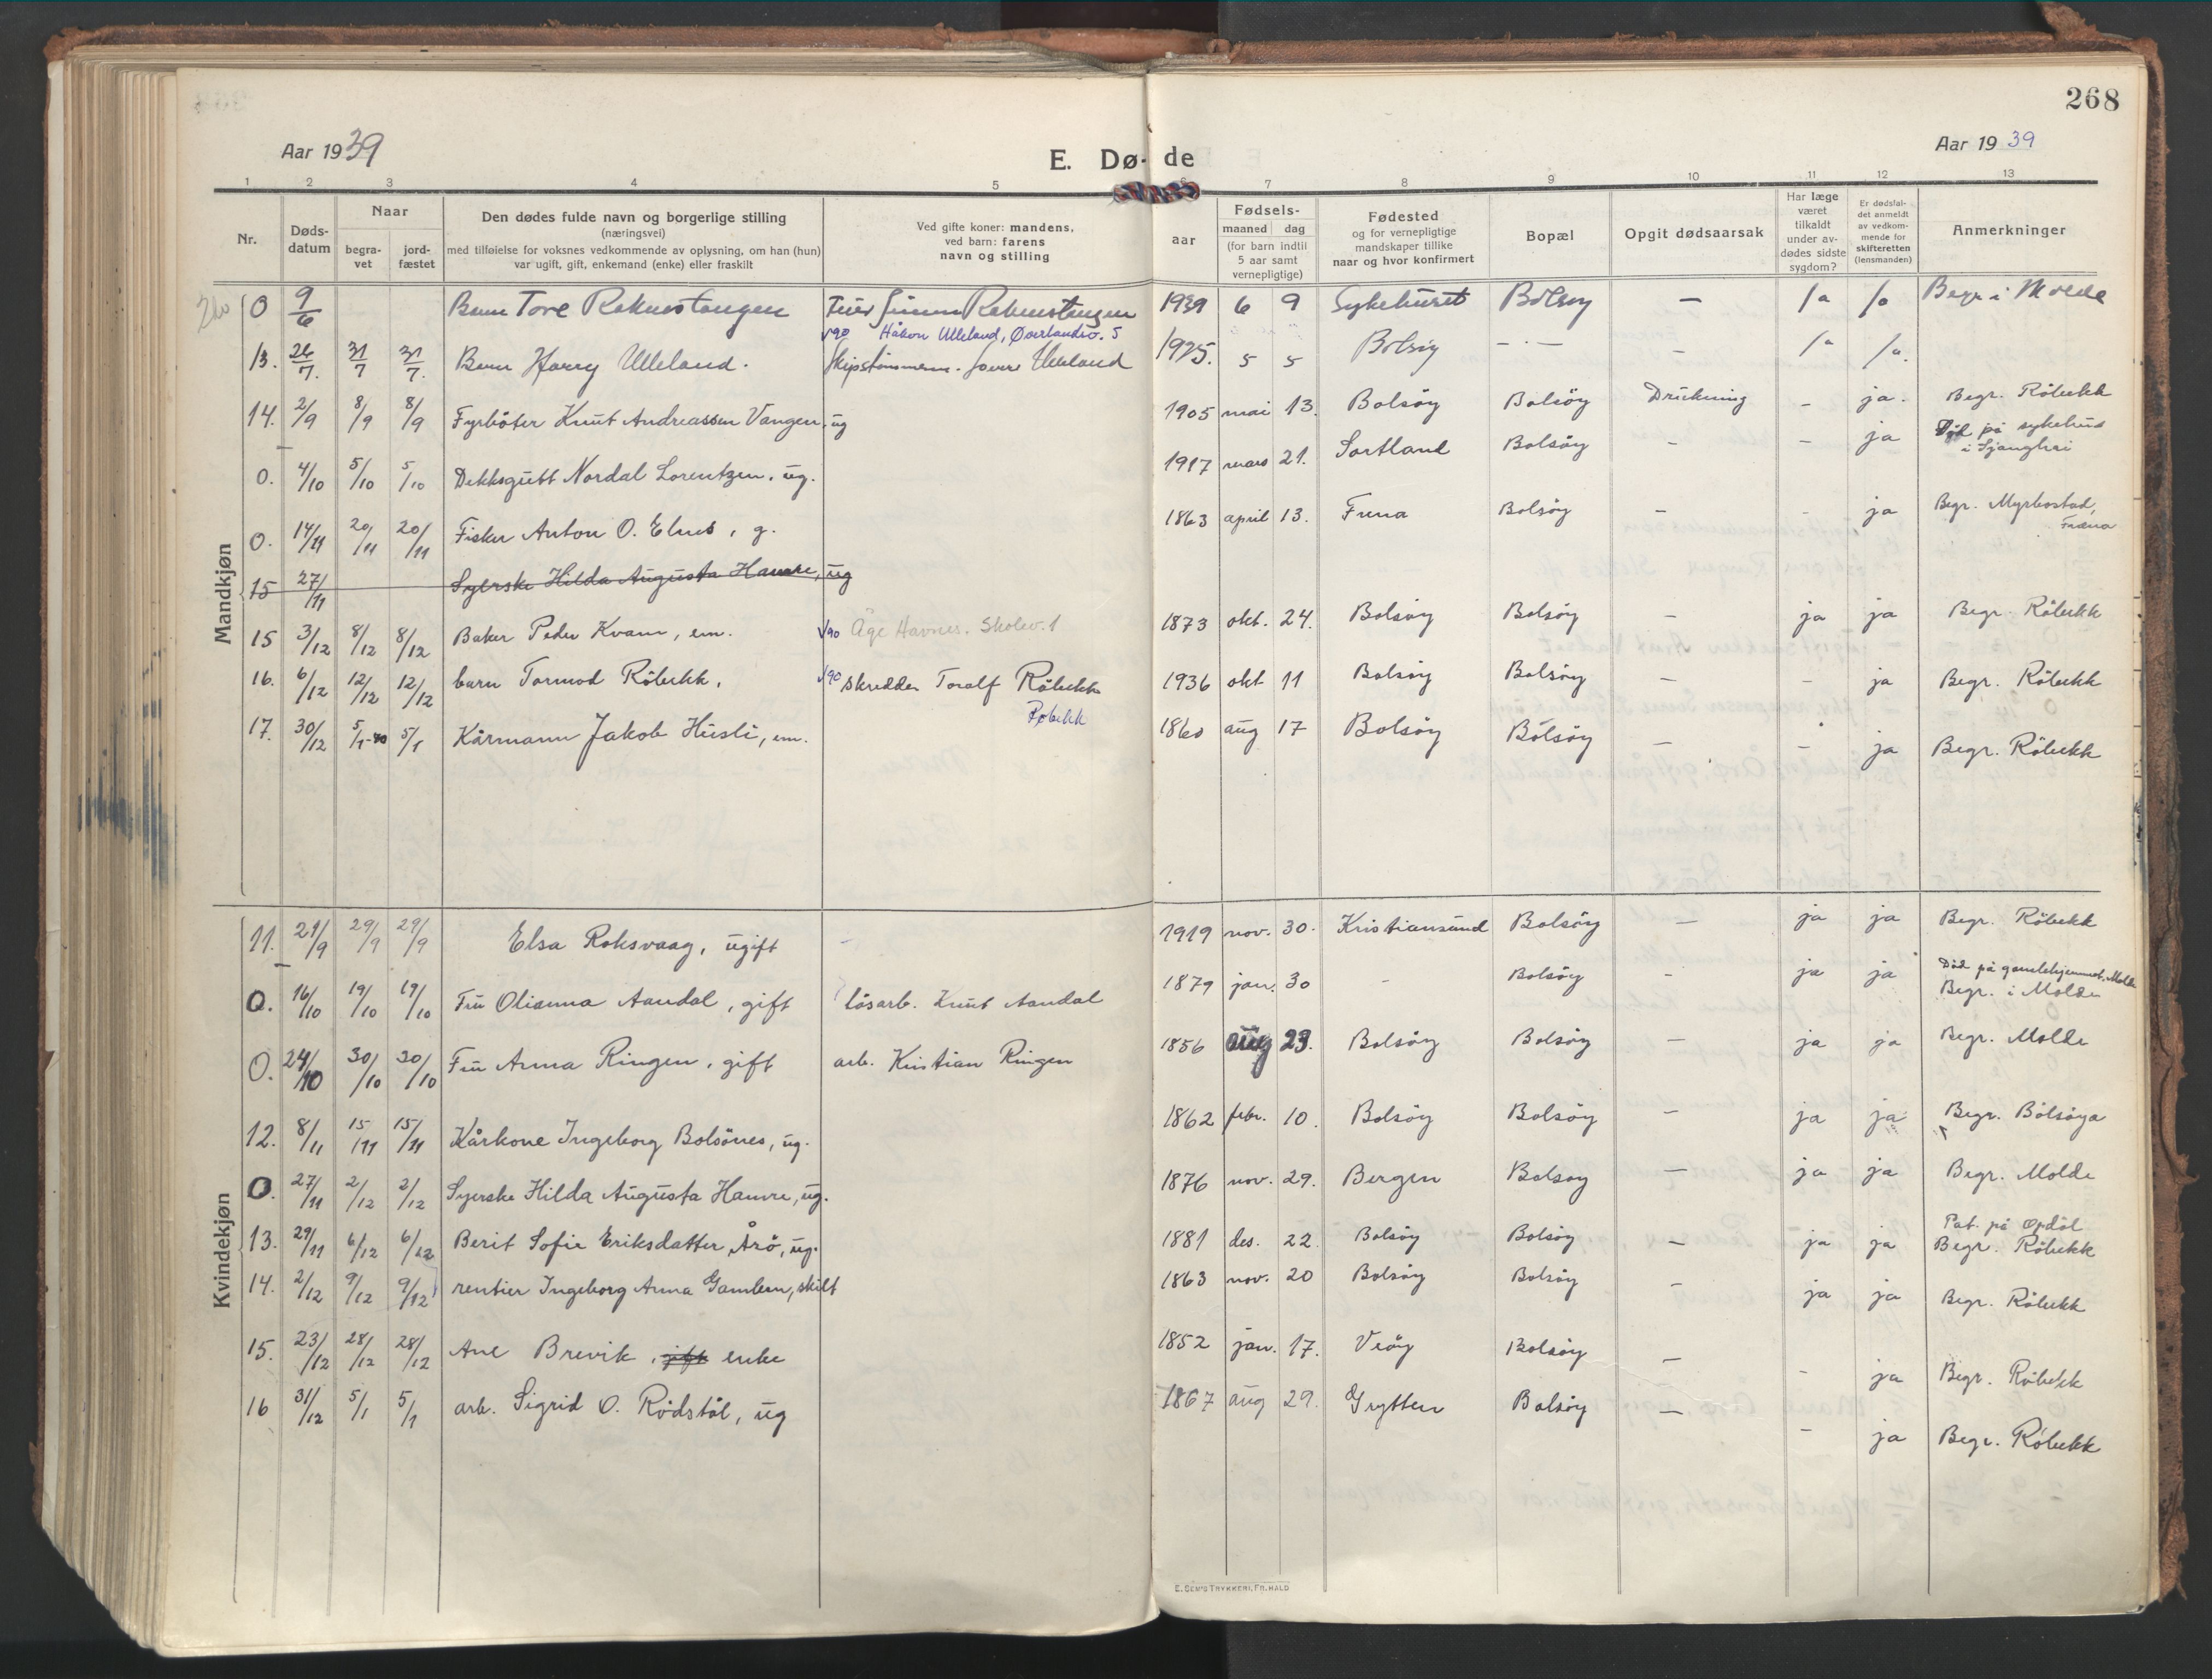 268
Aar 1939
E. Dø- de
Aar 1939
1 2 3 4 5 6 7 8 9 10 11 12 13
Nr.
Døds-datum
Naar
begra-vet
jord-fæstet
Den dødes fulde navn og borgerlige stilling
(næringsvei)
med tilføielse for voksnes vedkommende av oplysning, om han (hun)
var ugift, gift, enkemand (enke) eller fraskilt
Ved gifte koner: mandens,
ved barn: farens
navn og stilling
aar
Fødsels-
maaned dag
(for barn indtil
5 aar samt
vernepligtige)
Fødested
og for vernepligtige
mandskaper tillike
naar og hvor konfirmert
Bopæl
Opgit dødsaarsak
Har læge
været
tilkaldt
under av-
dødes sidste
sygdom?
Er dødsfal-
det anmeldt
av vedkom-
mende for
skifteretten
(lensmanden)
Anmerkninger
Mandkjøn
0 9/6 Barn Tore Reknestangen Reknestangen 1939 6 9 Sykehuset Bolsøy — Ja Ja Begr. i Molde
v90 Håkon Ulleland, Øverlandsv. 5
13. 26/7. 31/7 31/7. Barn Harry Ulleland. Skipstømmerm. Sverre Ulleland 1925. 5 5 Bolsøy — · — — Ja Ja.
14. 2/9 8/9 8/9 Fyrbøter Knut Andreassen Vangen, ug 1905 mai 13. Bolsöy Bolsöy Drukning - ja. Begr. Röbekk
0. 4/10 5/10 5/10 Dekksgutt Nordal Lorentzen, ug. 1917 mars 21. Sortland Bolsöy - - ja Död på sykehus
i Sjanghai
0. 14/11 20/11 20/11 Fisker Anton O. Elnes, g. 1863 april 13. Frena Bolsöy - - ja Begr. Myrbostad,
Fræna
15 27/11 Syerske Hilda Augusta Hamre, ug
15 3/12 8/12 8/12 Baker Peder Kvam, em. v90 Åge Havnes. Skolev. 1 1873 okt. 24. Bolsöy Bolsöy - ja ja Begr. Röbekk
16. 6/12 12/12 12/12 barn Tormod Röbekk, v90 skredder Toralf Röbekk 1936 okt 11 Bolsöy Bolsöy - - ja Begr. Röbekk
Røbekk
17. 30/12 5/1-40 5/1 Kårmann Jakob Husli, em. 1860 aug 17 Bolsöy Bolsöy — - ja Begr. Röbekk
Kvindekjøn
11. 21/9 29/9 29/9 Elsa Roksvaag, ugift - 1919 nov. 30. Kristiansund Bolsöy — ja ja Begr. Röbekk
0. 16/10 19/10 19/10 Fru Olianna Aandal, gift lösarb. Knut Aandal 1879 jan. 30 - Bolsöy - ja ja Död på gamlehjemmet, Molde
Begr. i Molde
0. 24/10 30/10 30/10 Fru Anna Ringen, gift arb. Kristian Ringen 1856 aug 23. Bolsöy Bolsöy — ja ja Begr. Molde
12. 8/11 15/11 15/11 Kårkone Ingeborg Bolsönes, ug. 1862 febr. 10. Bolsöy Bolsöy — ja ja Begr. Bolsöya
0. 27/11 2/12 2/12 Syerske Hilda Augusta Hamre, ug. 1876 nov. 29. Bergen Bolsöy — ja ja Begr. Molde
13. 29/11 6/12 6/12 Berit Sofie Eriksdatter Årö, ug. 1881 des. 22. Bolsöy Bolsöy — ja ja Pat. på Opdöl
Begr. Röbekk
14. 2/12 9/12 9/12 rentier Ingeborg Anna Gamlem, skilt 1863 nov. 20 Bolsöy Bolsöy - ja ja Begr. Röbekk
15. 23/12 28/12 28/12 Ane Brevik, gift enke 1852 jan. 17. Veöy Bolsöy — - ja Begr. Röbekk
16 31/12 5/1 5/1 arb. Sigrid O. Rødstöl, ug 1867 aug 29. Grytten Bolsöy — - ja Begr. Röbekk
E. SEM'S TRYKKERI, FR.HALD